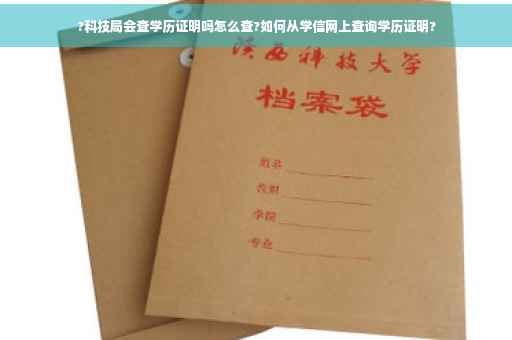 ?科技局会查学历证明吗怎么查?如何从学信网上查询学历证明?
陕西科技大学
档案袋
姓名
学院
专业